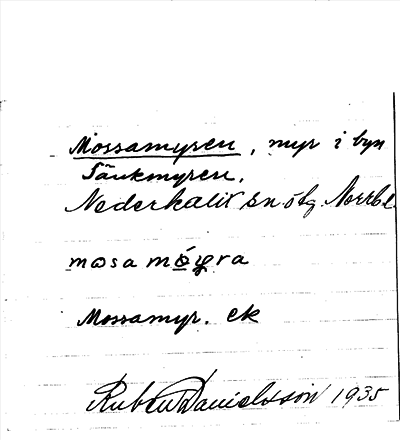 Mossamyren, myr i byn
Tänkmyren,
Nederkalix sn ö bg. Norrb l.
mosa
Mossamyr. ek
Ruben Danielsson 1935